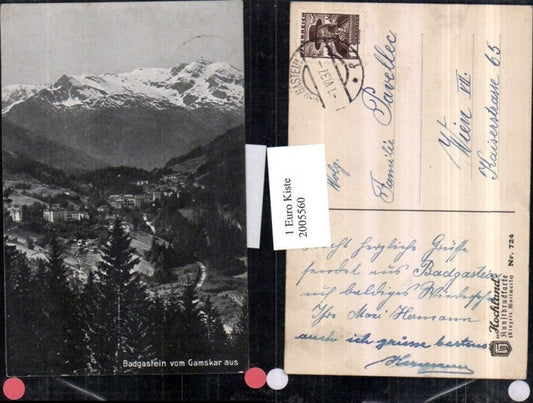 Badgastein vom Gamskar aus
1 Euro Kiste
2005560
ÖSTERREICH
GASTEIN
-1.VI.37
Familie Pavellec
Wien VII.
Kaiserstrasse 65
herzliche Grüsse
sendet aus Badgastein
auf baldiges
Ihre Maxi Hermann
auch ich grüsse bestens
Hermann
Hochland
Kunstdruckkarte
Nr. 724